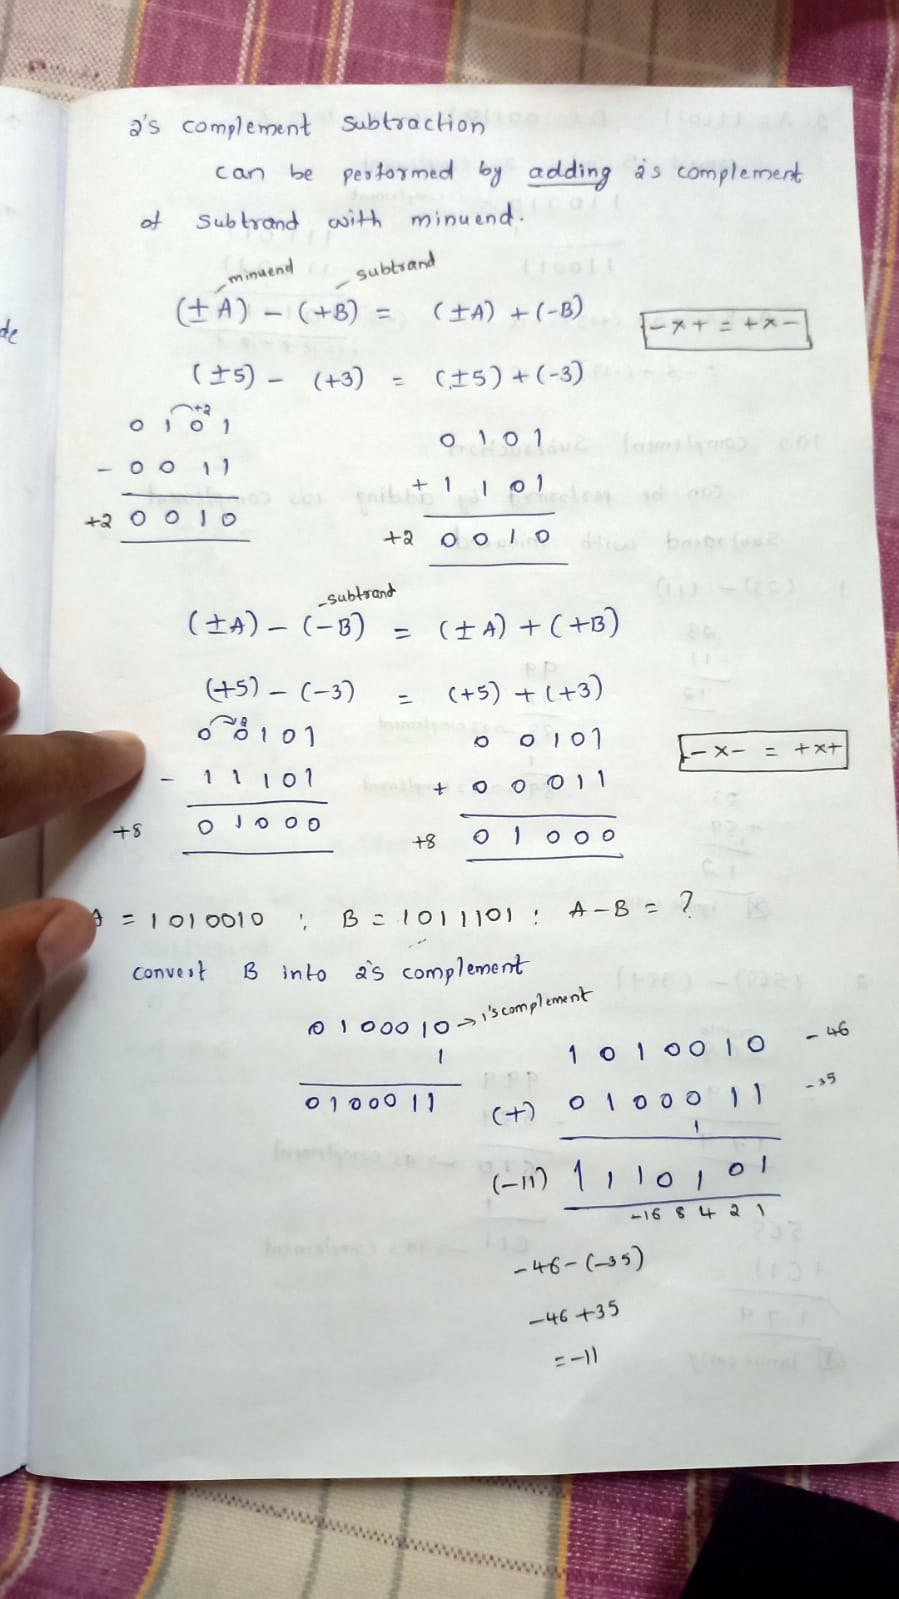 2's complement subtraction
can be performed by adding 2's complement
of subtrand with minuend.
minuend subtrand
(± A) - (+B) = (±A) + (-B)
- x + = + x -
(±5) - (+3) = (±5) + (-3)
+2
0 1 0 1
0 1 0 1
- 0 0 1 1
+ 1 1 0 1
+2 0 0 1 0
+2 0 0 1 0
subtrand
(±A) - (-B) = (± A) + (+B)
(+5) - (-3) = (+5) + (+3)
0 0 1 0 1
0 0 1 0 1
- x - = + x +
- 1 1 1 0 1
+ 0 0 0 1 1
+8 0 1 0 0 0
+8 0 1 0 0 0
= 1010010 ; B = 1011101 ; A - B = ?
convert B into 2's complement
0100010 → 1's complement
1
1 0 1 0 0 1 0 - 46
0100011
(+) 0 1 0 0 0 1 1 - 35
1
(-11) 1 1 1 0 1 0 1
-16 8 4 2 1
-46 - (-35)
-46 + 35
= -11